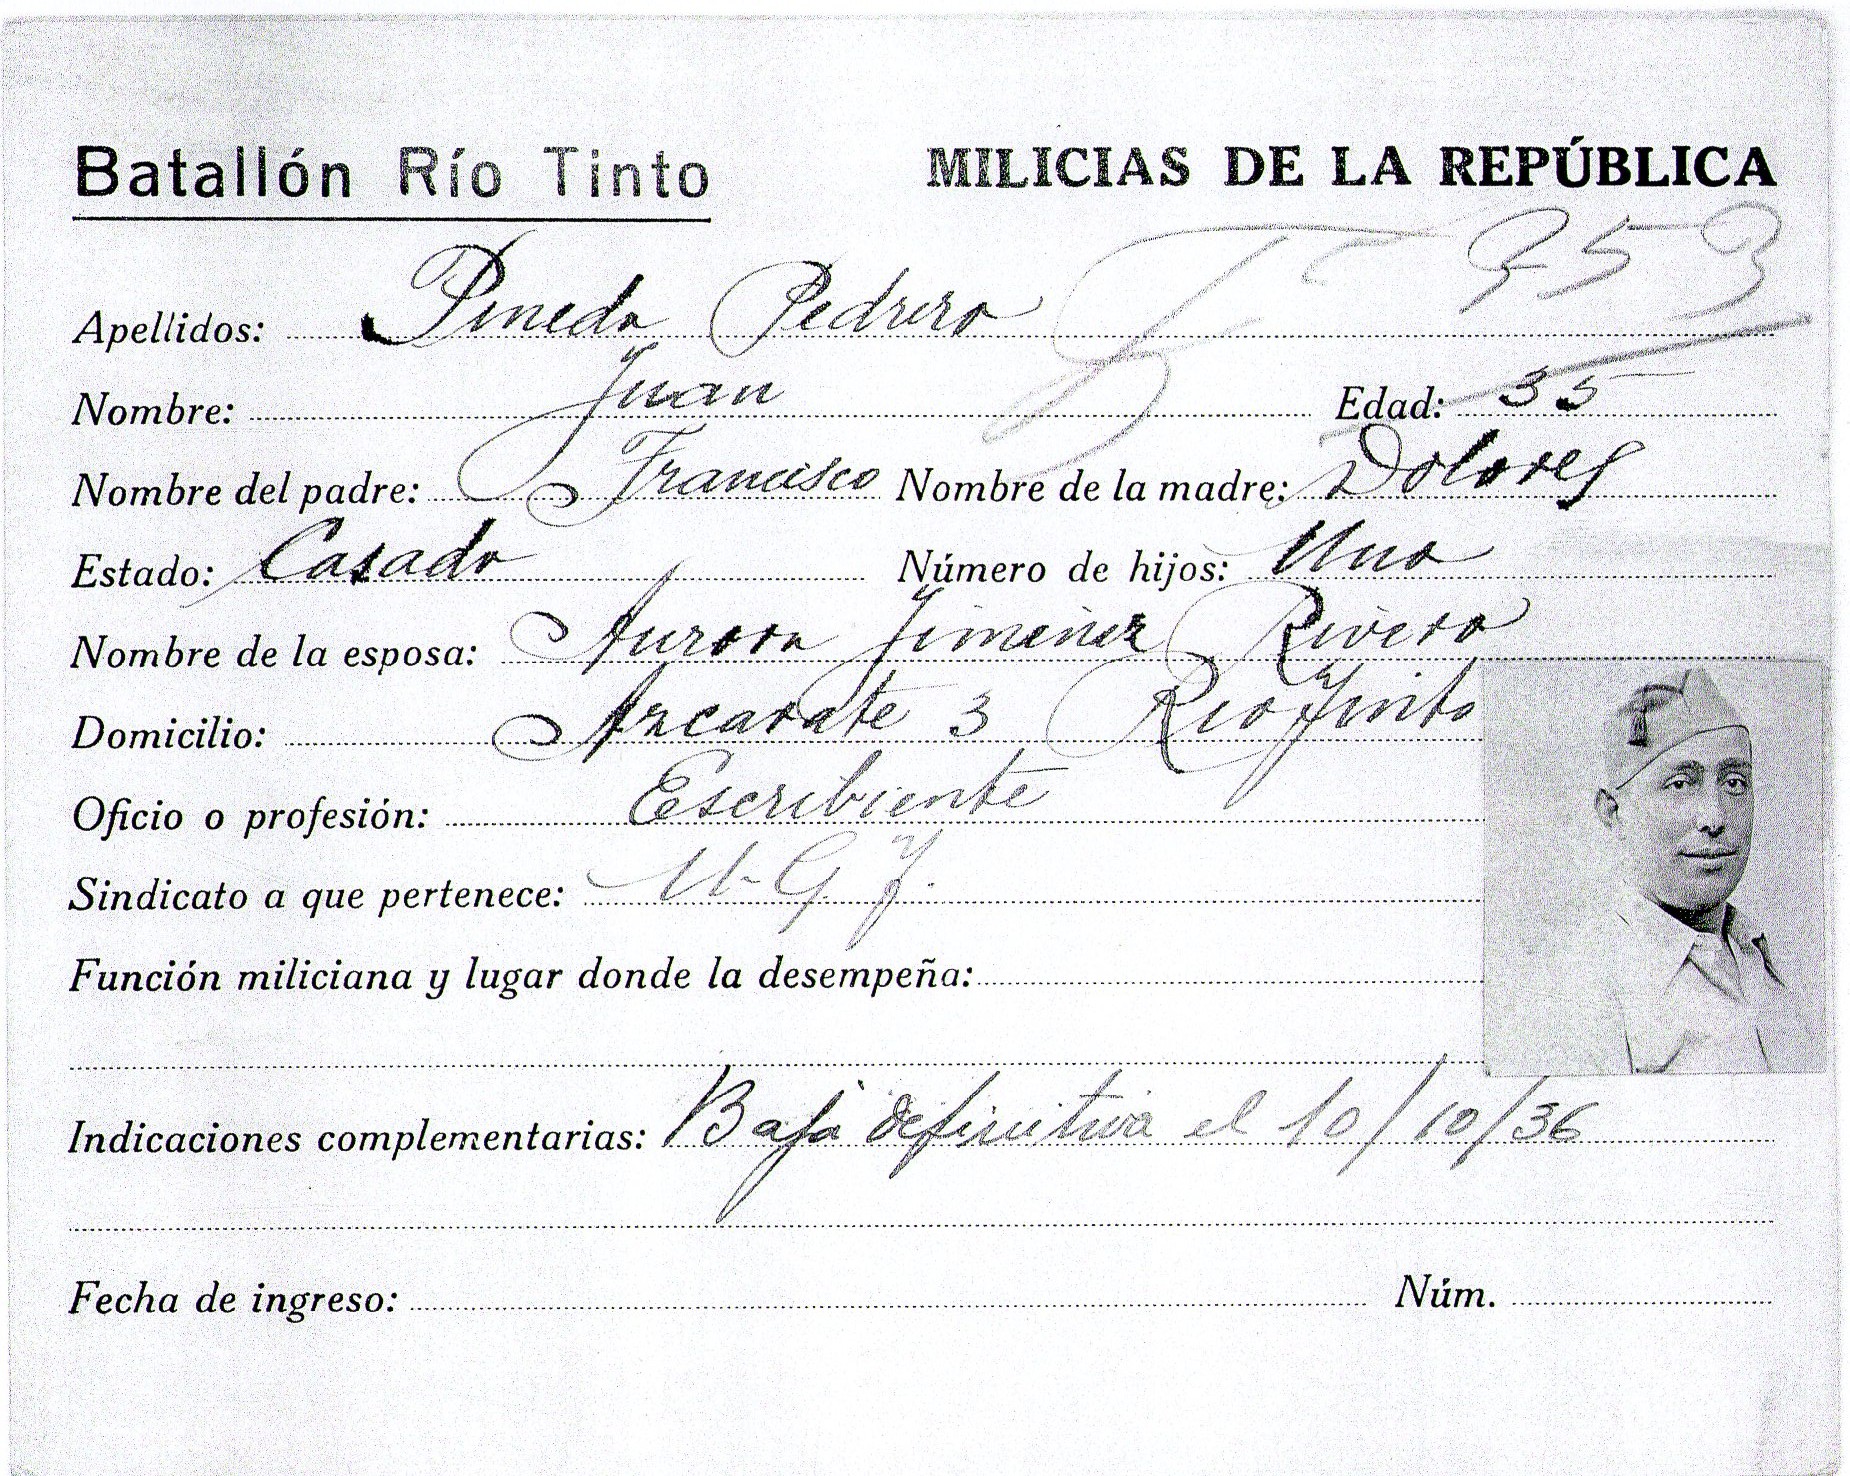 Batallón Río Tinto MILICIAS DE LA REPÚBLICA
953
Apellidos: Pineda Pedrero
Nombre: Juan Edad: 35
Nombre del padre: Francisco Nombre de la madre: Dolores
Estado: Casado Número de hijos: Uno
Nombre de la esposa: Aurora Jimenez Rivero
Domicilio: Azcarate 3 Riotinto
Oficio o profesión: Escribiente
Sindicato a que pertenece: U-G T.
Función miliciana y lugar donde la desempeña:
Indicaciones complementarias: Baja definitiva el 10/10/36
Fecha de ingreso: Núm.